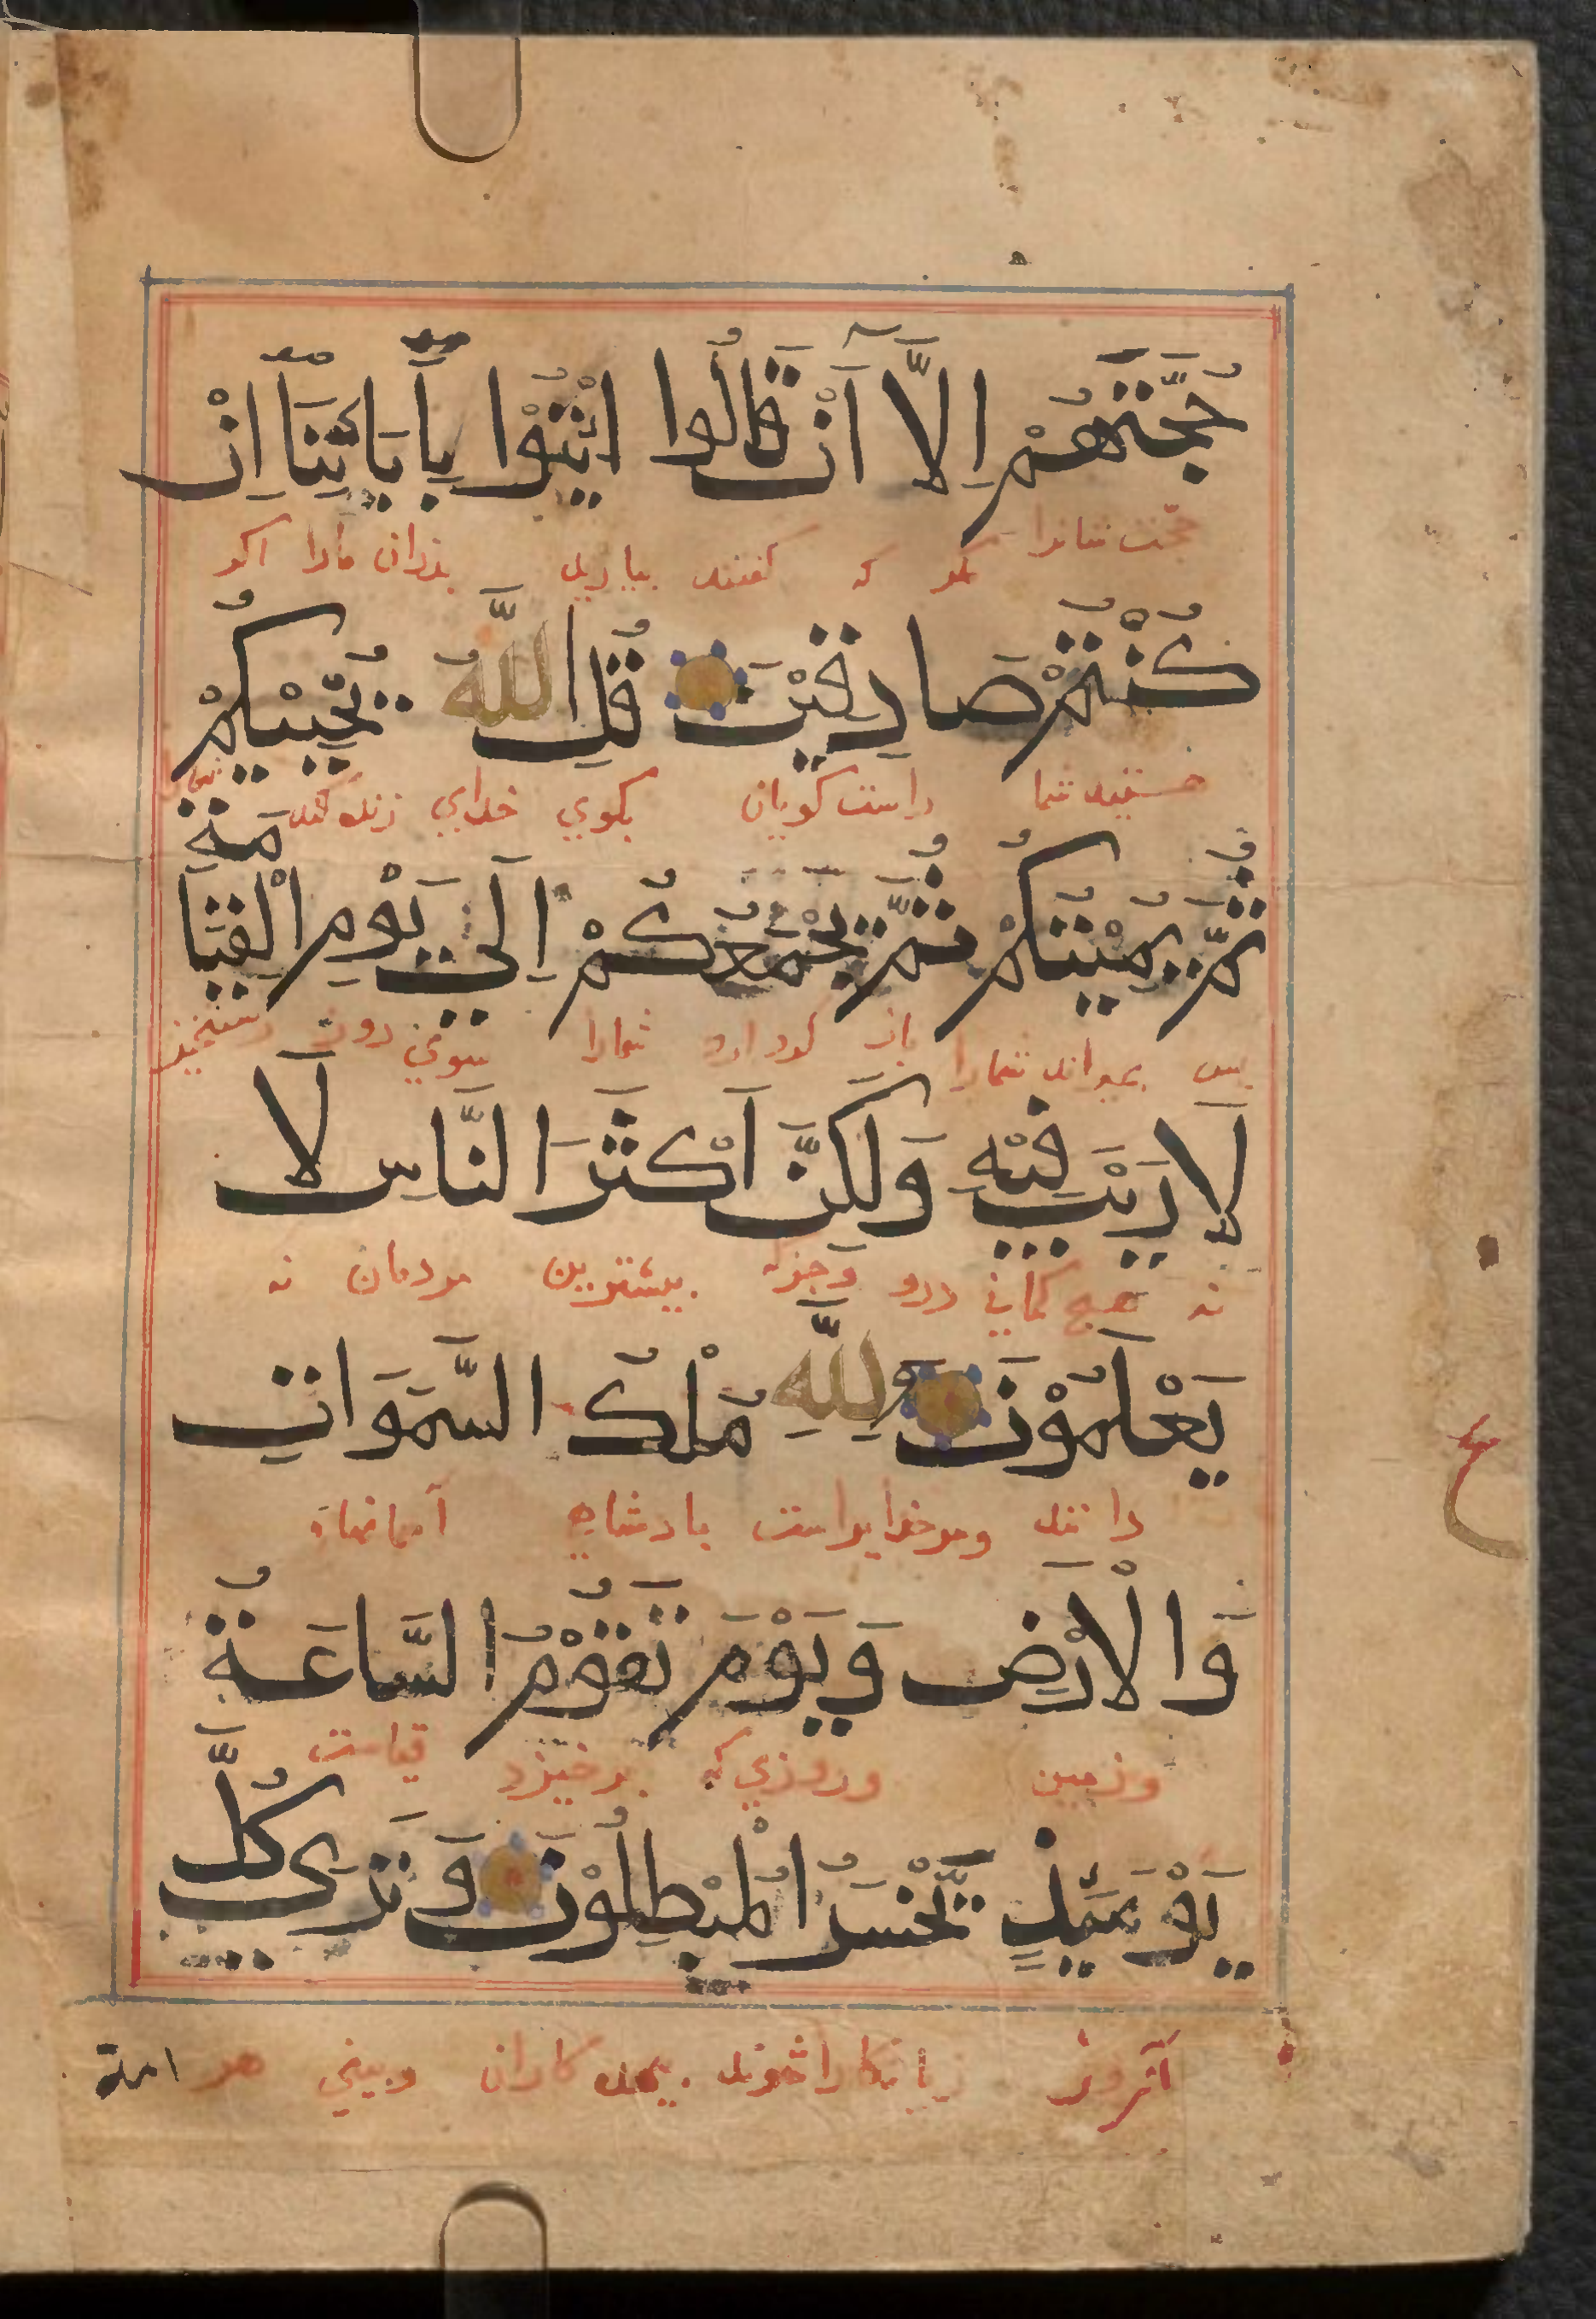 حُجَّتَهُمْ اِلَّآ اَنْ قَالُوا ائْتُوْا بِآبَائِنَآ اِنْ
حجت شانرا مكر كه كفتند بياريد بذران مارا اكر
كُنْتُمْ صَادِقِيْنَ قُلِ اللَّهُ يُحْيِيْكُمْ
هستيد شما راست كويان بكوي خداي زنده كند شمارا
ثُمَّ يُمِيْتُكُمْ ثُمَّ يَجْمَعُكُمْ اِلَى يَوْمِ الْقِيَامَةِ
بس بميراند شمارا باز كرد ارد شمارا سوي روز رستخيز
لَا رَيْبَ فِيْهِ وَلَكِنَّ اَكْثَرَ النَّاسِ لَا
نه هيچ كماني درو وجزكه بيشترين مردمان نه
يَعْلَمُوْنَ وَلِلَّهِ مُلْكُ السَّمَوَاتِ
دانند ومر خدايراست بادشاهي آسمانهاء
وَالْاَرْضِ وَيَوْمَ تَقُوْمُ السَّاعَةُ
وزمين وروزي كه برخيزد قيامت
يَوْمَئِذٍ يَخْسَرُ الْمُبْطِلُوْنَ وَتَرَى كُلَّ
آنروز زيانكارا شوند بيهده كاران وبيني هر
امة
ع